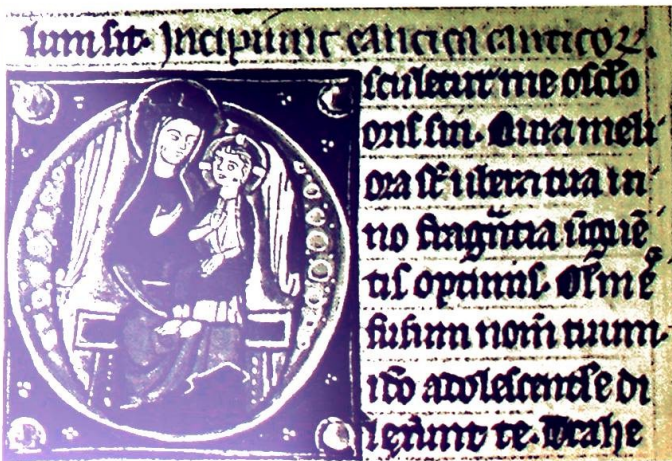 lum sit. Incipiunt cantica canticoꝝ.
sculetur me osclo
oris sui. Quia meli
ora sūt ubera tua ui
no fragrātia ūguē
tis optimis. Olm̄ ē
fusum nom̄ tuum.
iđo adolescentule di
lexerunt te. Trahe